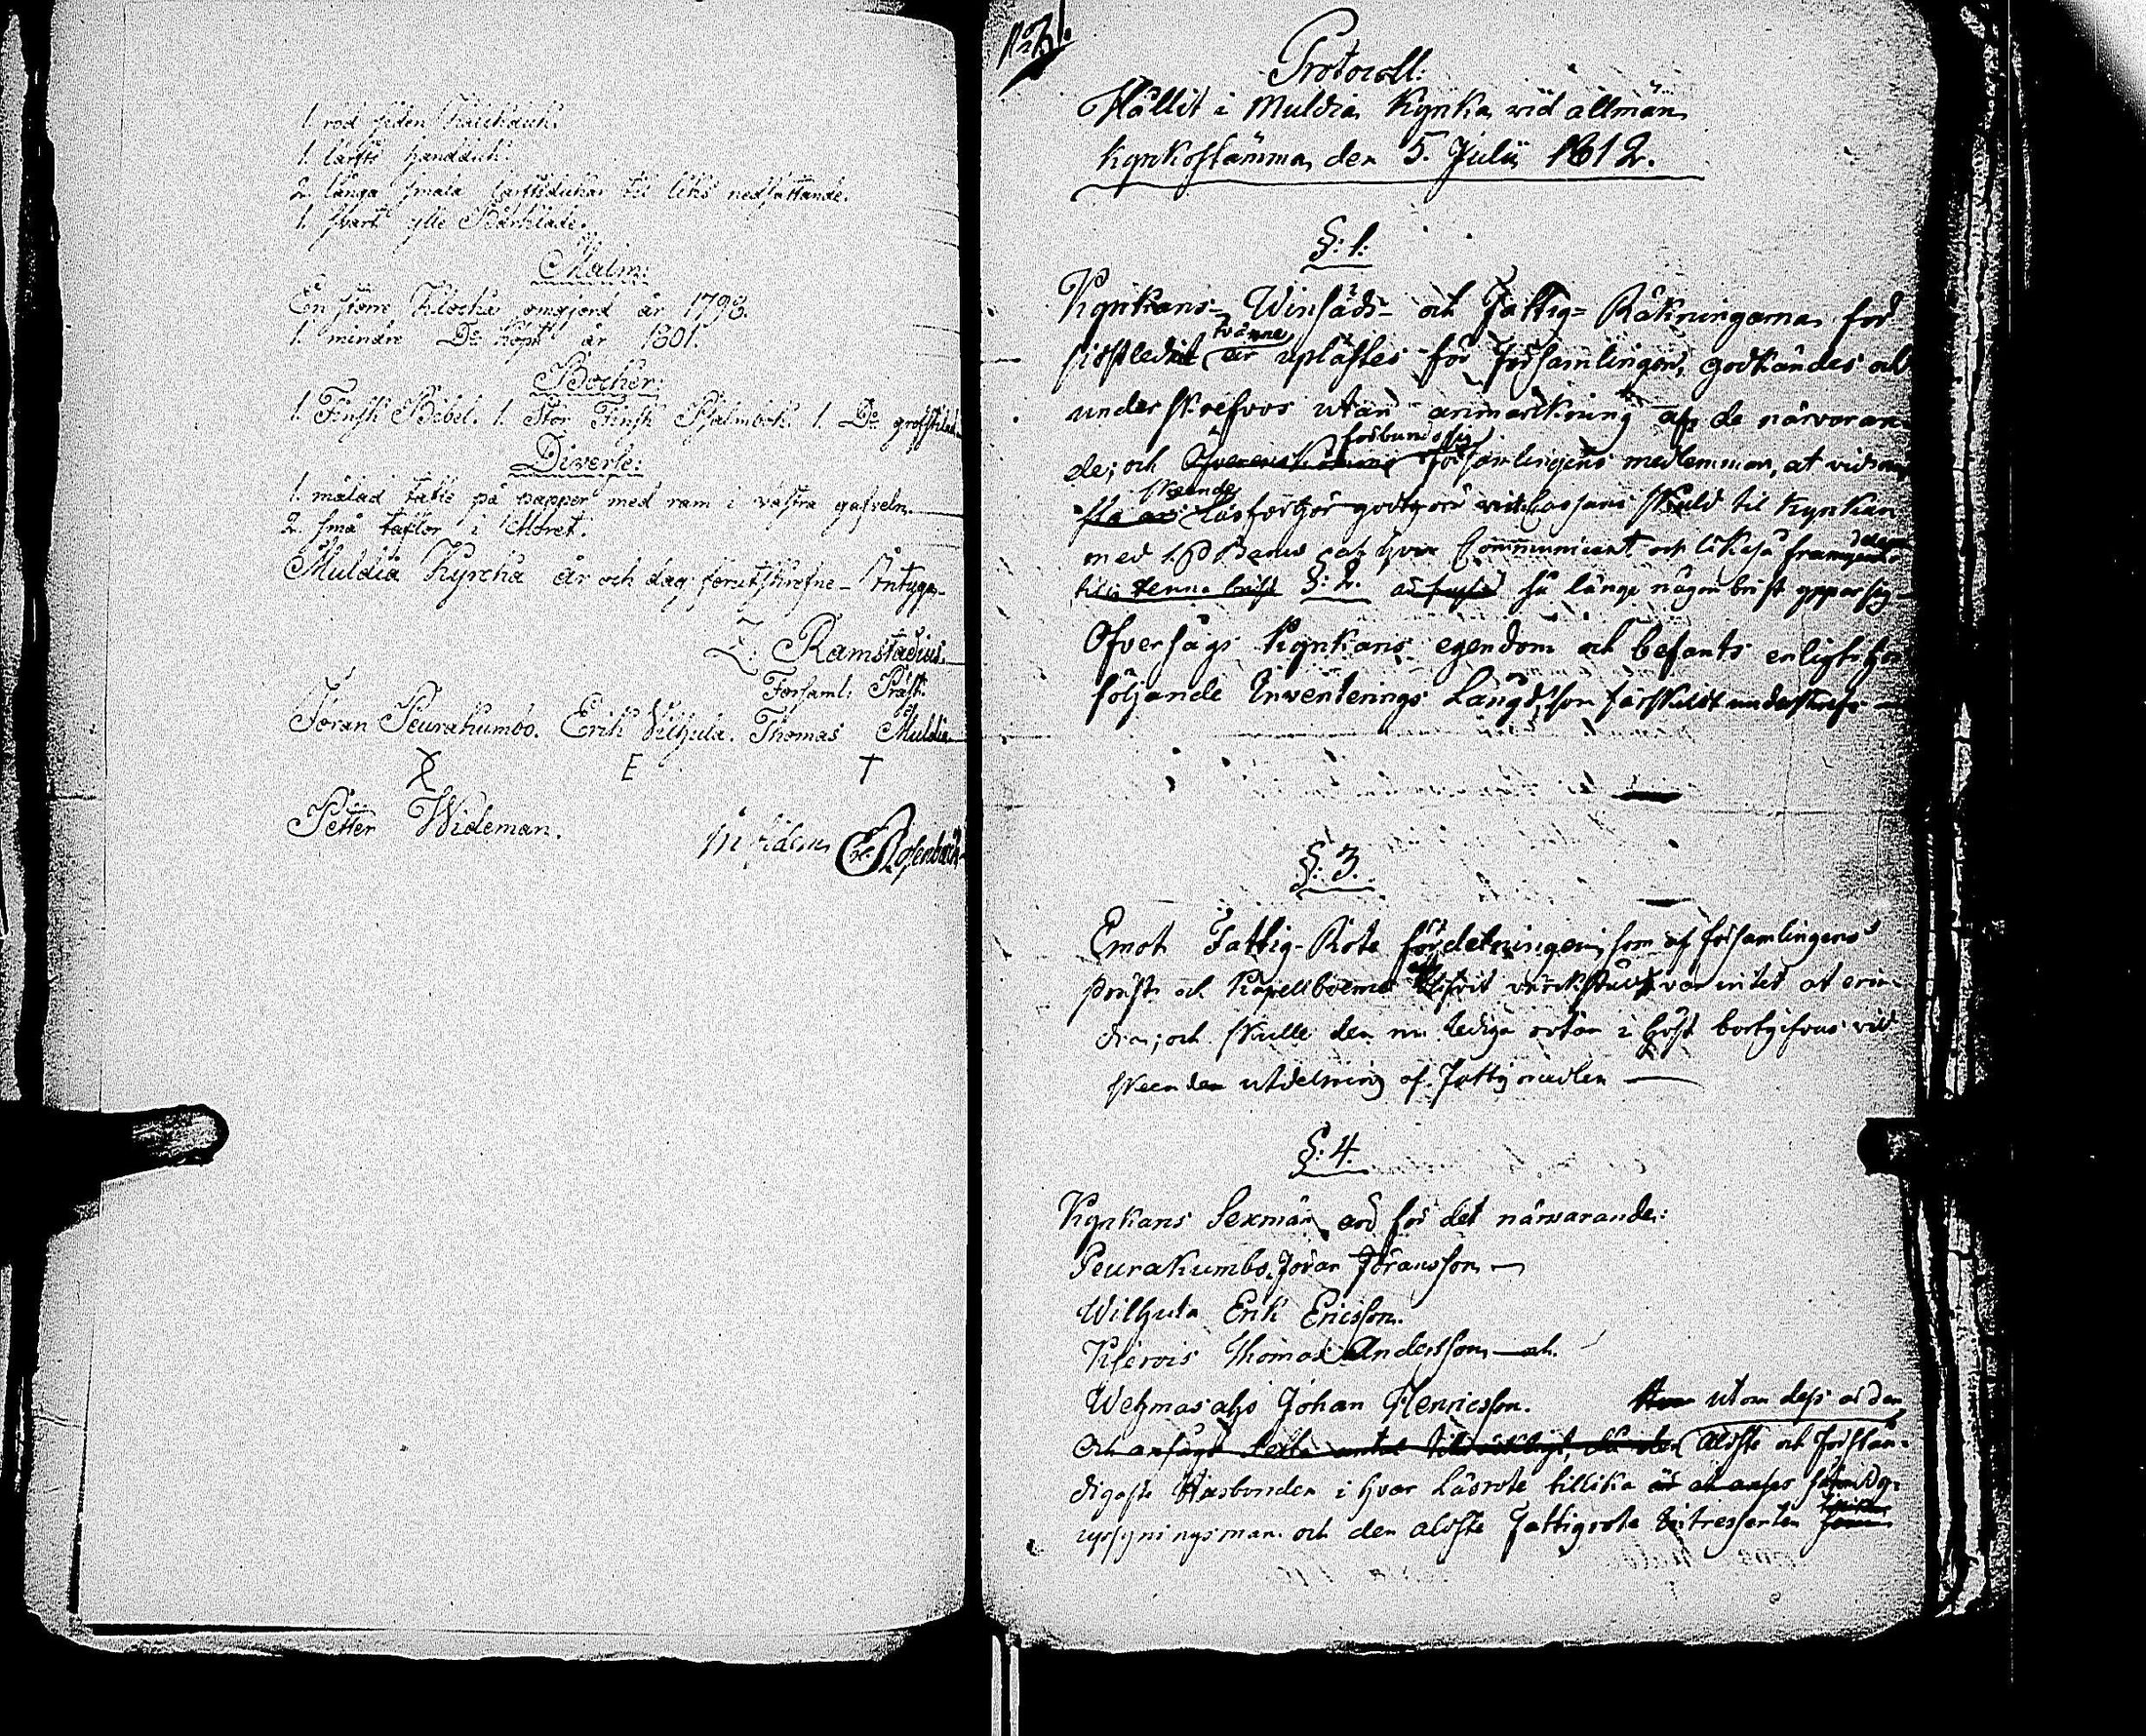 1. röd siden Kalckduk.
1. lärfts handduk.
2. långa smala lärftsdukar til liks nedsättande.
1. svart ylle Bårkläde.
Malm:
En större Klocka omgjord år 1798.
1. mindre Do köpt år 1801.
Böcker:
1. Finsk Bibel. 1. Stor Finsk Psalmbok. 1. Do grofstilad
Diverse:
1. målad tafla på papper med ram i västra gafveln.
2. små taflor i Choret.
Muldia Kyrcka år och dag förutskrefne Intyga
Z. Ramstadius.
Församl: Präst.
Jöran Peurakumbo. Erik Vilhula. Thomas Muldia
E T
Petter Wideman.
In fidem
No 21.
Protocoll:
Hållit i Muldia Kyrka vid allmän
Kyrkostämma den 5. Julii 1812.
§: 1:
Kyrkans- Winsäds- och Fattig- Räkningarna för
sistledne tvänne år uplästes för Församlingen, godkändes och
underskrefvos utan anmärkning af de närvaran
de; och förbundo sig Församlingens medlemmar, at vid
skeende Läsförhör godtgöra Cassans skuld til Kyrkan
med Communicant och likaså framgent
§: 2. så länge någon brist yppar sig
Öfversågs Kyrkans egendom och befants enligt här
följande Inventerings Längd, som särskildt underskrefs
§: 3.
Emot Fattig-Rote fördelningen, som af församlingens
Präst och Kapellboerne blifvit värkstäld var intet at erin
dra; och skulle den nu lediga rotan i höst bortgifvas vid
skeende utdelning af Fattigmedlen
§: 4.
Kyrkans Sexmän äro för det närvarande:
Peurakumbo Jöran Jöransson
Wilhula Erik Ericsson.
Thomas Andersson och
Wehmasahjo Johan Henricsson. utom dess är den
äldste och förstån-
digaste Husbonden i hvar Läsrote tillika
upsyningsman och den äldste Fattigrote